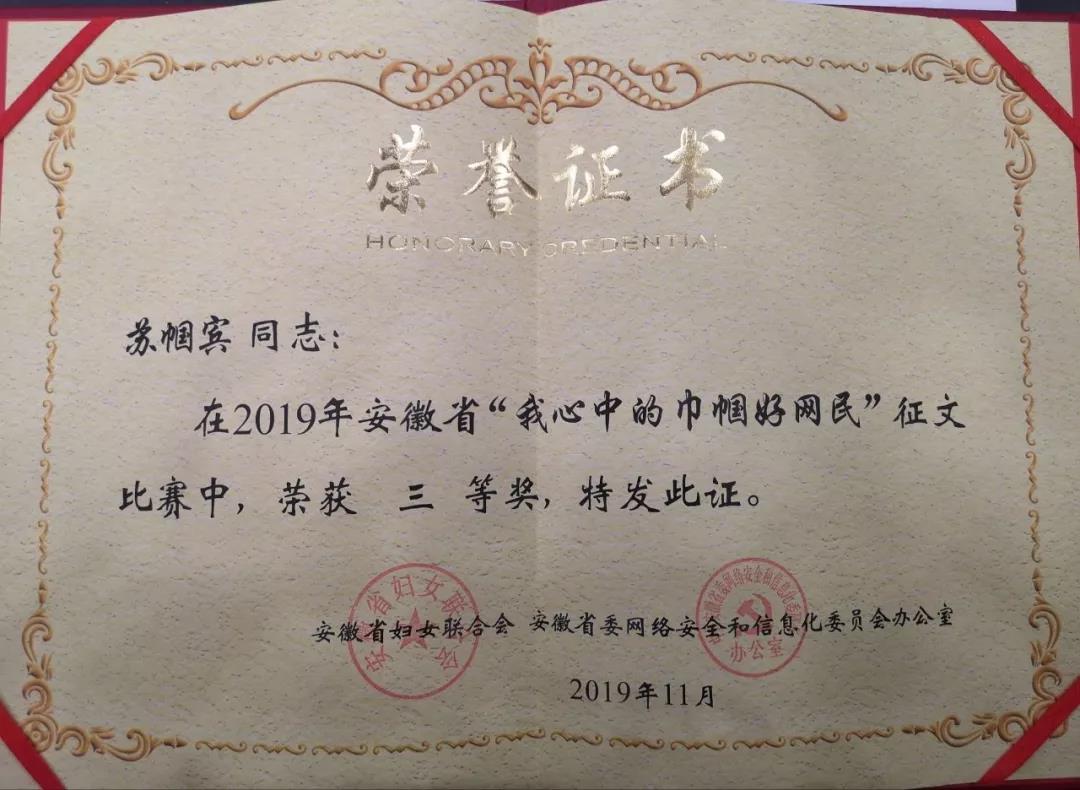 荣誉证书
HONORARY CREDENTIAL
苏帼宾 同志：
在2019年安徽省“我心中的巾帼好网民”征文
比赛中，荣获 三 等奖，特发此证。
安徽省妇女联合会 安徽省委网络安全和信息化委员会办公室
安徽省妇女联合会
安徽省委网络安全和信息化委员会
办公室
2019年11月